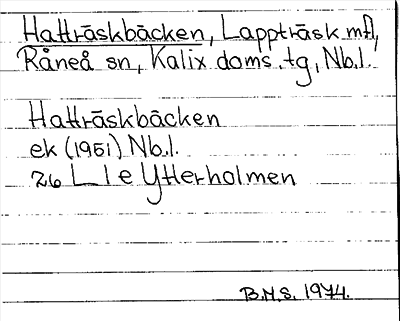 Hatträskbäcken, Lappträsk mfl,
Råneå sn, Kalix doms. tg, Nb.l.
Hatträskbäcken
ek (1951) Nb.l.
26 L l e Ytterholmen
B.M.S. 1974.